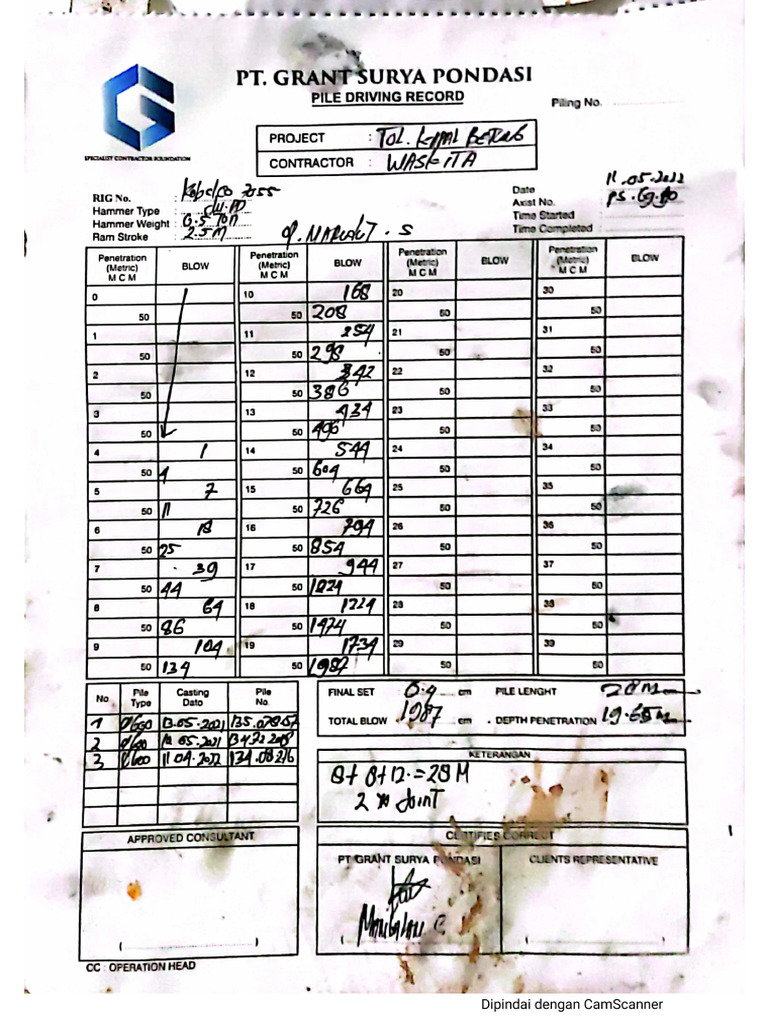 PT. GRANT SURYA PONDASI
PILE DRIVING RECORD
Piling No.
SPECIALIST CONTRACTOR FOUNDATION
PROJECT :
CONTRACTOR : WASKITA
11.05.2022
RIG No. : Kobelco 7055
Date
Hammer Type :
Axist No.
Hammer Weight : 6.5 Ton
Time Started :
Ram Stroke : 2.5 M
Time Completed :
Penetration (Metric) M C M BLOW Penetration (Metric) M C M BLOW Penetration (Metric) M C M BLOW Penetration (Metric) M C M BLOW
0 10 168 20 30
50 50 208 50 50
1 11 254 21 31
50 50 298 50 50
2 12 342 22 32
50 50 386 50 50
3 13 434 23 33
50 50 496 50 50
4 1 14 544 24 34
50 4 50 604 50 50
5 7 15 664 25 35
50 11 50 726 50 50
6 18 16 794 26 36
50 25 50 854 50 50
7 39 17 944 27 37
50 44 50 1024 50 50
8 64 18 1224 28 38
50 86 50 1474 50 50
9 104 19 1734 29 39
50 134 50 1987 50 50
No Pile Type Casting Dato Pile No.
1 13.05.2021
2
3 11 04.2022
FINAL SET cm PILE LENGHT 28 M
TOTAL BLOW 1987 cm . DEPTH PENETRATION 19.65 M
KETERANGAN
8+8+12.=28 M
2 JoinT
APPROVED CONSULTANT
CERTIFIES CORRECT
PT GRANT SURYA PONDASI
CLIENTS REPRESENTATIVE
CC : OPERATION HEAD
Dipindai dengan CamScanner